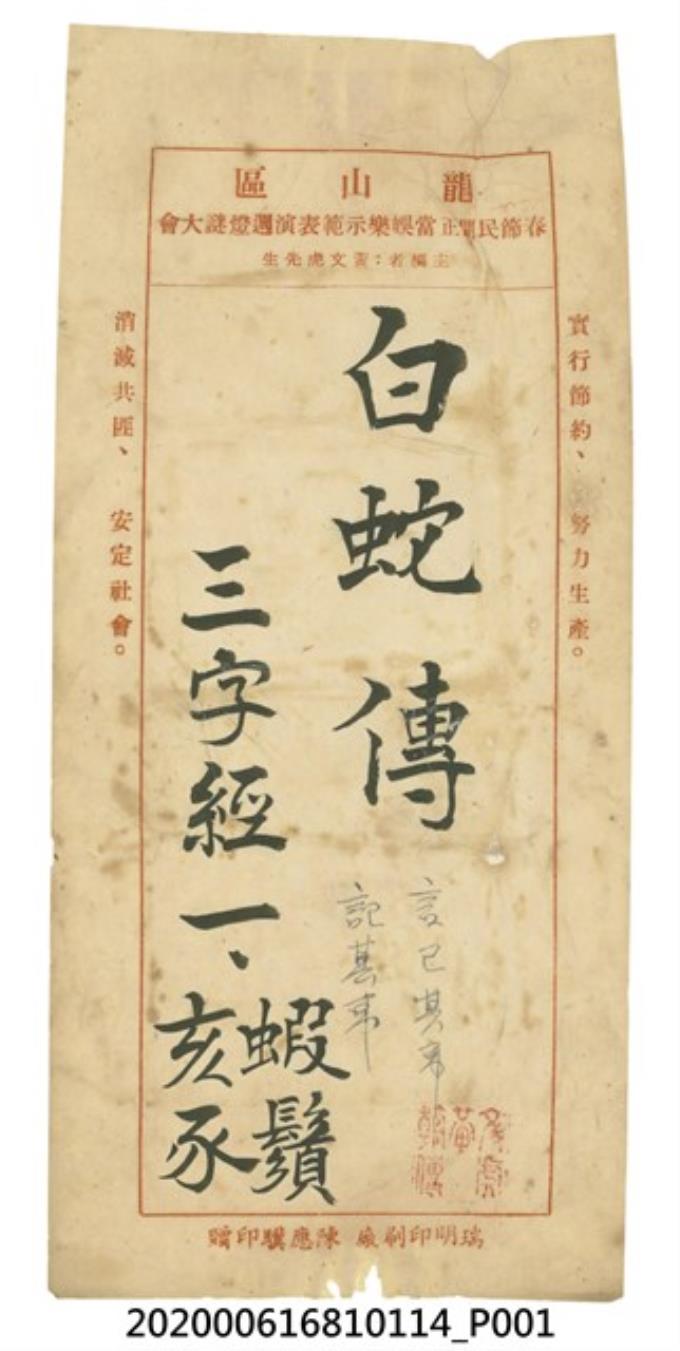 龍山區
春節民間正當娛樂示範表演週燈謎大會
主編者：黃文虎先生
實行節約、努力生產。
白蛇傳
言已其事
記其事
三字經一、
蝦鬚
亥豕
消滅共匪、安定社會。
瑞明印刷廠 陳應印贈
202000616810114_P001